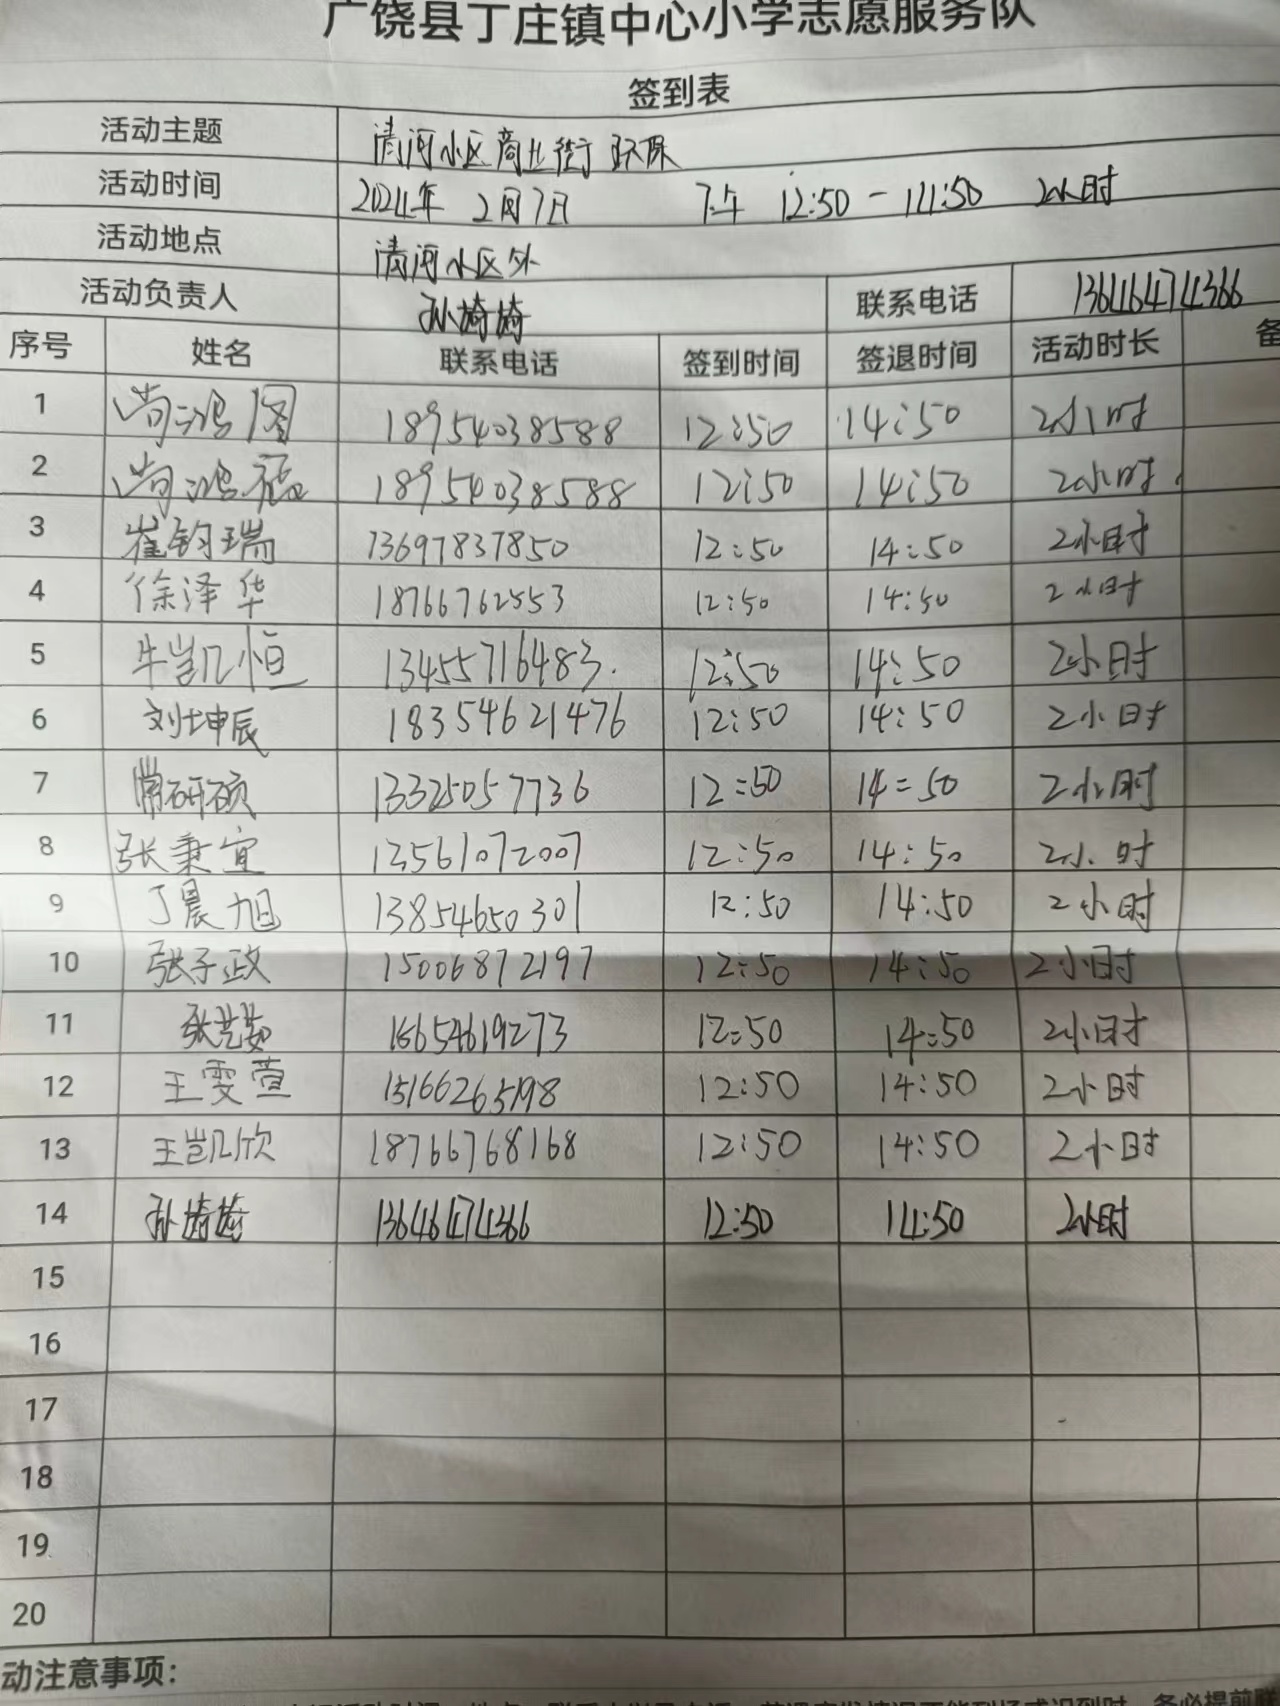 广饶县丁庄镇中心小学志愿服务队
签到表
活动主题 清河小区商业街环保
活动时间 2024年 2月7日 下午 12:50-14:50 2小时
活动地点 清河小区外
活动负责人 孙埼埼 联系电话 13646474366
序号 姓名 联系电话 签到时间 签退时间 活动时长 备
1 尚鸿图 18954038588 12:50 14:50 2小时
2 尚鸿福 18954038588 12:50 14:50 2小时
3 崔钧瑞 13697837850 12:50 14:50 2小时
4 徐泽华 18766762553 12:50 14:50 2小时
5 牛凯恒 13455716483 12:50 14:50 2小时
6 刘坤辰 18354621476 12:50 14:50 2小时
7 常研硕 13325057736 12:50 14:50 2小时
8 张秉宜 13561072007 12:50 14:50 2小时
9 丁晨旭 13854650301 12:50 14:50 2小时
10 张子政 15006872197 12:50 14:50 2小时
11 张艺茹 15654619273 12:50 14:50 2小时
12 王雯萱 15166265198 12:50 14:50 2小时
13 王凯欣 18766768168 12:50 14:50 2小时
14 孙埼埼 13646474366 12:50 14:50 2小时
15
16
17
18
19
20
动注意事项：